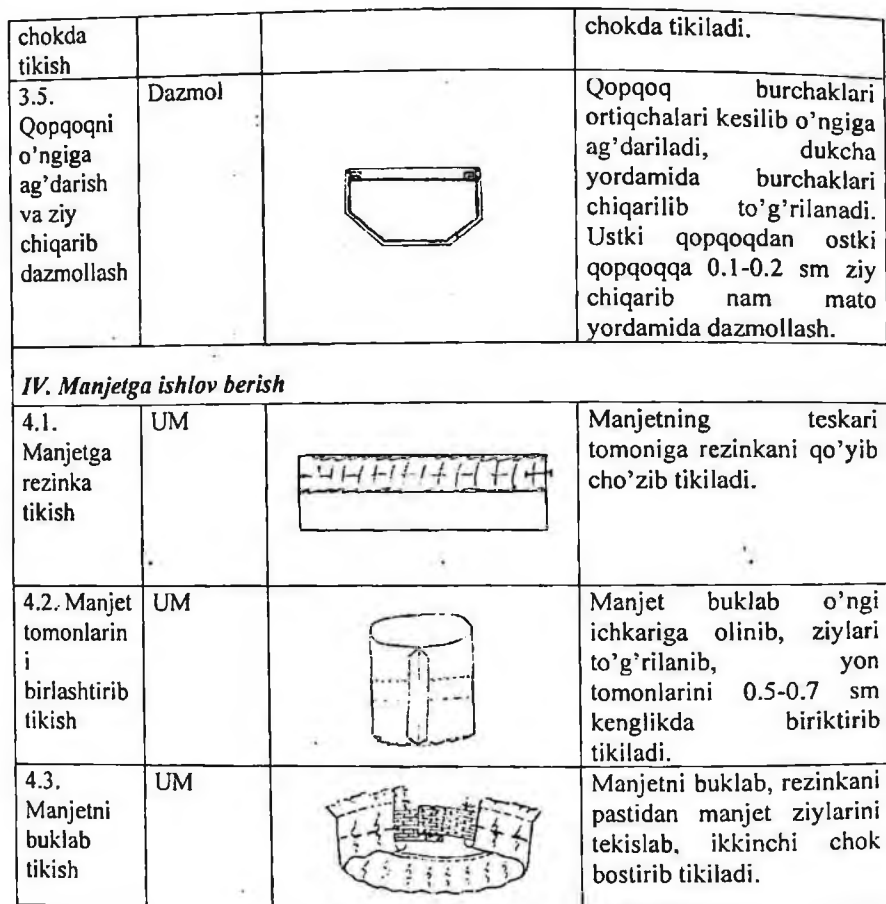 chokda
tikish
chokda tikiladi.
3.5.
Qopqoqni
o'ngiga
ag'darish
va ziy
chiqarib
dazmollash
Dazmol
Qopqoq burchaklari
ortiqchalari kesilib o'ngiga
ag'dariladi, dukcha
yordamida burchaklari
chiqarilib to'g'rilanadi.
Ustki qopqoqdan ostki
qopqoqqa 0.1-0.2 sm ziy
chiqarib nam mato
yordamida dazmollash.
IV. Manjetga ishlov berish
4.1.
Manjetga
rezinka
tikish
UM
Manjetning teskari
tomoniga rezinkani qo'yib
cho'zib tikiladi.
4.2. Manjet
tomonlarin
i
birlashtirib
tikish
UM
Manjet buklab o'ngi
ichkariga olinib, ziylari
to'g'rilanib, yon
tomonlarini 0.5-0.7 sm
kenglikda biriktirib
tikiladi.
4.3.
Manjetni
buklab
tikish
UM
Manjetni buklab, rezinkani
pastidan manjet ziylarini
tekislab, ikkinchi chok
bostirib tikiladi.